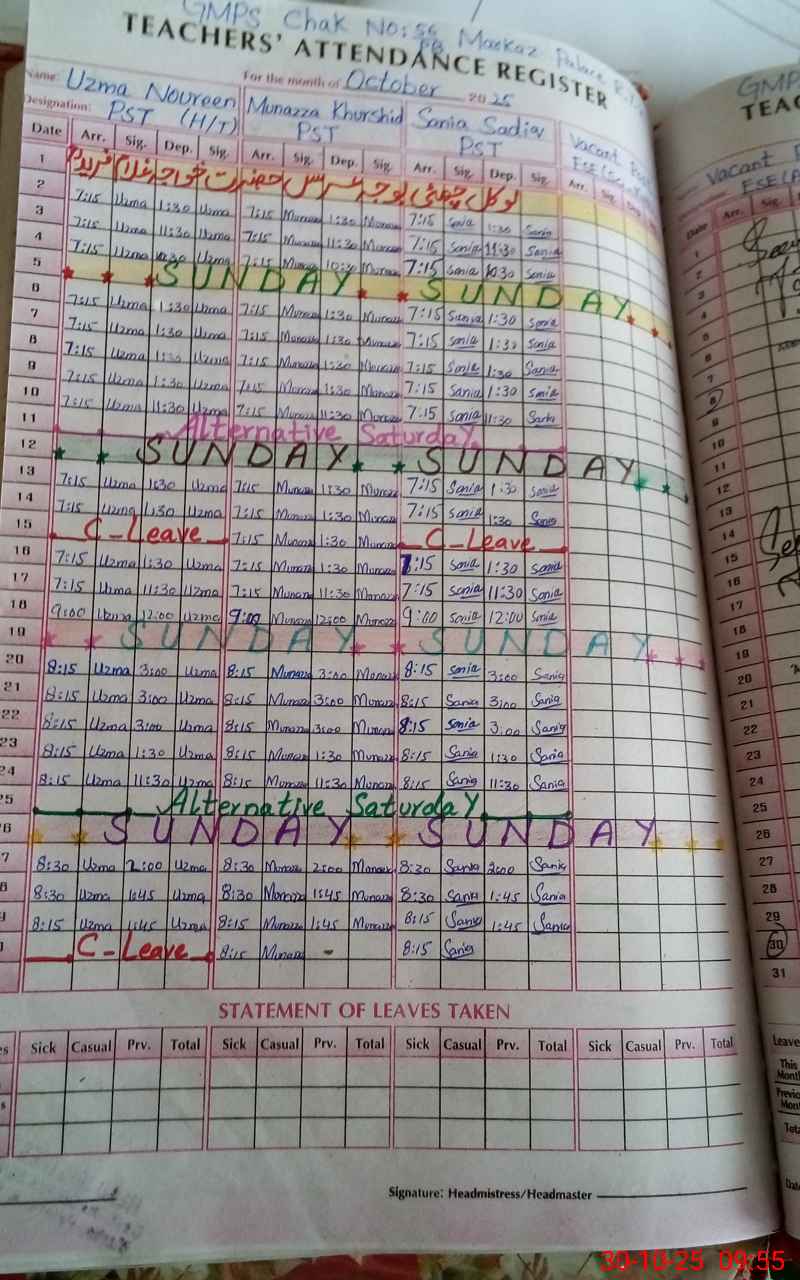 GMPS Chak No: 55
PB Markaz
TEACHERS' ATTENDANCE REGISTER
Name: Uzma Noureen
For the month of October 2025
Designation: PST (H/T)
Munazza Khurshid
PST
Sania Sadiq
PST
Vacant
Date Arr. Sig. Dep. Sig. Arr. Sig. Dep. Sig. Arr. Sig. Dep. Sig. Arr. Sig.
1
لوکل چھٹی بوجہ عرس حضرت خواجہ غلام فرید
2 7:15 Uzma 1:30 Uzma 7:15 1:30 7:15 Sania 1:30 Sania
3 7:15 Uzma 11:30 Uzma 7:15 11:30 7:15 Sania 11:30 Sania
4 7:15 Uzma 10:30 Uzma 7:15 10:30 7:15 Sania 10:30 Sania
5 SUNDAY SUNDAY
6 7:15 Uzma 1:30 Uzma 7:15 1:30 7:15 Sania 1:30 Sania
7 7:15 Uzma 1:30 Uzma 7:15 1:30 7:15 Sania 1:30 Sania
8 7:15 Uzma 1:30 Uzma 7:15 1:30 7:15 Sania 1:30 Sania
9 7:15 Uzma 1:30 Uzma 7:15 1:30 7:15 Sania 1:30 Sania
10 7:15 Uzma 11:30 Uzma 7:15 11:30 7:15 Sania 11:30 Sania
11 Alternative Saturday
12 SUNDAY SUNDAY
13 7:15 Uzma 1:30 Uzma 7:15 1:30 7:15 Sania 1:30 Sania
14 7:15 Uzma 1:30 Uzma 7:15 1:30 7:15 Sania 1:30 Sania
15 C-Leave 7:15 1:30 C-Leave
16 7:15 Uzma 1:30 Uzma 7:15 1:30 7:15 Sania 1:30 Sania
17 7:15 Uzma 11:30 Uzma 7:15 11:30 7:15 Sania 11:30 Sania
18 9:00 Uzma 12:00 Uzma 9:00 12:00 9:00 Sania 12:00 Sania
19 SUNDAY SUNDAY
20 8:15 Uzma 3:00 Uzma 8:15 3:00 8:15 Sania 3:00 Sania
21 8:15 Uzma 3:00 Uzma 8:15 3:00 8:15 Sania 3:00 Sania
22 8:15 Uzma 3:00 Uzma 8:15 3:00 8:15 Sania 3:00 Sania
23 8:15 Uzma 1:30 Uzma 8:15 1:30 8:15 Sania 1:30 Sania
24 8:15 Uzma 11:30 Uzma 8:15 11:30 8:15 Sania 11:30 Sania
25 Alternative Saturday
6 SUNDAY SUNDAY
7 8:30 Uzma 2:00 Uzma 8:30 2:00 8:30 Sania 2:00 Sania
8 8:30 Uzma 1:45 Uzma 8:30 1:45 8:30 Sania 1:45 Sania
8:15 Uzma 1:45 Uzma 8:15 1:45 8:15 Sania 1:45 Sania
C-Leave 8:15 - 8:15 Sania
STATEMENT OF LEAVES TAKEN
Sick Casual Prv. Total Sick Casual Prv. Total Sick Casual Prv. Total Sick Casual Prv. Total
Signature: Headmistress/Headmaster
GMPS
TEAC
Vacant
Date Arr. Sig.
1
2
3
4
5
6
7
8
9
10
11
12
13
14
15
16
17
18
19
20
21
22
23
24
25
26
27
28
29
30
31
Leave
This
Mont
Previo
Mon
30-10-25 09:55